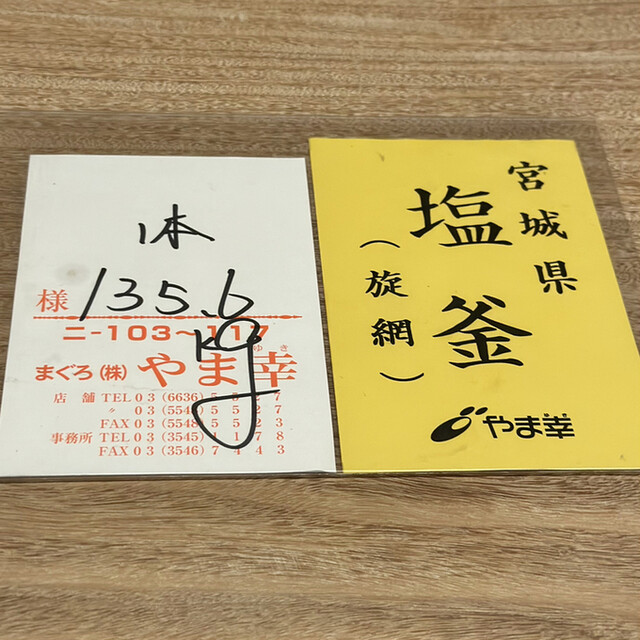 1本
様 135.6
kg
ニ-103～117
まぐろ(株)やま幸
ゆき
店舗 TEL 03 (6636)
〃 03 (5548) 5527
FAX 03 (5548) 5523
事務所 TEL 03 (3545) 1178
FAX 03 (3546) 7443
宮城県
塩釜
(旋網)
やま幸